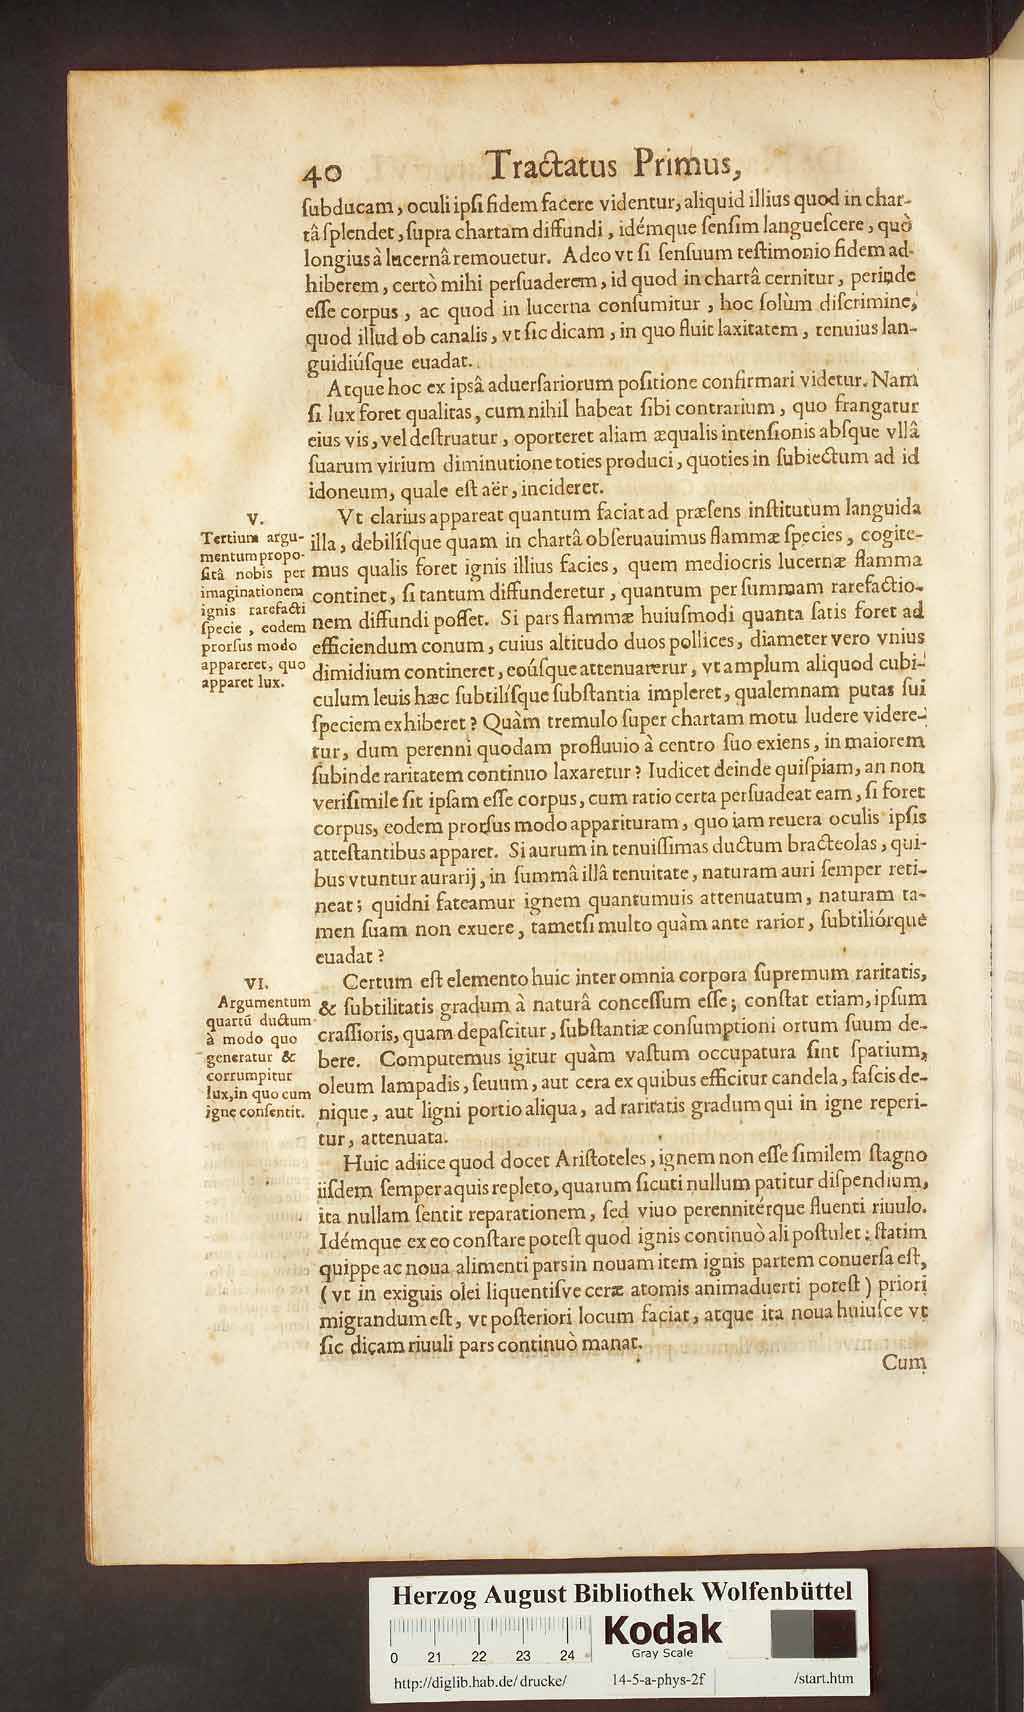 40 Tractatus Primus,
ſubducam, oculi ipſi fidem facere videntur, aliquid illius quod in char-
tâ ſplendet, ſupra chartam diffundi, idémque ſenſim langueſcere, quò
longius à lucernâ remouetur. Adeo vt ſi ſenſuum teſtimonio fidem ad-
hiberem, certò mihi perſuaderem, id quod in chartâ cernitur, perinde
eſſe corpus, ac quod in lucerna conſumitur, hoc ſolùm diſcrimine,
quod illud ob canalis, vt ſic dicam, in quo fluit laxitatem, tenuius lan-
guidiúſque euadat.
Atque hoc ex ipsâ aduerſariorum poſitione confirmari videtur. Nam
ſi lux foret qualitas, cum nihil habeat ſibi contrarium, quo frangatur
eius vis, vel deſtruatur, oporteret aliam æqualis intenſionis abſque vllâ
ſuarum virium diminutione toties produci, quoties in ſubiectum ad id
idoneum, quale eſt aër, incideret.
V.
Tertium argu-
mentum propo-
ſitâ nobis per
imaginationem
ignis rarefacti
ſpecie, eodem
prorſus modo
appareret, quo
apparet lux.
Vt clarius appareat quantum faciat ad præſens inſtitutum languida
illa, debilíſque quam in chartâ obſeruauimus flammæ ſpecies, cogite-
mus qualis foret ignis illius facies, quem mediocris lucernæ flamma
continet, ſi tantum diffunderetur, quantum per ſummam rarefactio-
nem diffundi poſſet. Si pars flammæ huiuſmodi quanta ſatis foret ad
efficiendum conum, cuius altitudo duos pollices, diameter vero vnius
dimidium contineret, eoúſque attenuaretur, vt amplum aliquod cubi-
culum leuis hæc ſubtilíſque ſubſtantia impleret, qualemnam putas ſui
ſpeciem exhiberet? Quàm tremulo ſuper chartam motu ludere videre-
tur, dum perenni quodam profluuio à centro ſuo exiens, in maiorem
ſubinde raritatem continuo laxaretur? Iudicet deinde quiſpiam, an non
veriſimile ſit ipſam eſſe corpus, cum ratio certa perſuadeat eam, ſi foret
corpus, eodem prorſus modo apparituram, quo iam reuera oculis ipſis
atteſtantibus apparet. Si aurum in tenuiſſimas ductum bracteolas, qui-
bus vtuntur aurarij, in ſummâ illâ tenuitate, naturam auri ſemper reti-
neat; quidni fateamur ignem quantumuis attenuatum, naturam ta-
men ſuam non exuere, tametſi multo quàm ante rarior, ſubtiliórque
euadat?
VI.
Argumentum
quartū ductum
à modo quo
generatur &
corrumpitur
lux, in quo cum
igne conſentit.
Certum eſt elemento huic inter omnia corpora ſupremum raritatis,
& ſubtilitatis gradum à naturâ conceſſum eſſe; conſtat etiam, ipſum
craſſioris, quam depaſcitur, ſubſtantiæ conſumptioni ortum ſuum de-
bere. Computemus igitur quàm vaſtum occupatura ſint ſpatium,
oleum lampadis, ſeuum, aut cera ex quibus efficitur candela, faſcis de-
nique, aut ligni portio aliqua, ad raritatis gradum qui in igne reperi-
tur, attenuata.
Huic adiice quod docet Ariſtoteles, ignem non eſſe ſimilem ſtagno
iiſdem ſemper aquis repleto, quarum ſicuti nullum patitur diſpendium,
ita nullam ſentit reparationem, ſed viuo perennitérque fluenti riuulo.
Idémque ex eo conſtare poteſt quod ignis continuò ali poſtulet: ſtatim
quippe ac noua alimenti pars in nouam item ignis partem conuerſa eſt,
(vt in exiguis olei liquentiſve ceræ atomis animaduerti poteſt) priori
migrandum eſt, vt poſteriori locum faciat, atque ita noua huiuſce vt
ſic dicam riuuli pars continuò manat.
Cum
Herzog August Bibliothek Wolfenbüttel
Kodak
Gray Scale
0 21 22 23 24
http://diglib.hab.de/drucke/ 14-5-a-phys-2f /start.htm